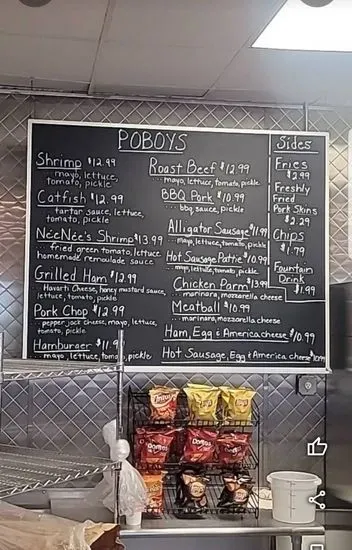 POBOYS
Shrimp $12.99
mayo, lettuce,
tomato, pickle
Catfish $12.99
tartar sauce, lettuce,
tomato, pickle
NeeNee's Shrimp $13.99
fried green tomato, lettuce
homemade remoulade sauce
Grilled Ham $12.99
Havarti Cheese, honey mustard sauce,
lettuce, tomato, pickle
Pork Chop $12.99
pepper jack cheese, mayo, lettuce,
tomato, pickle
Hamburger $11.99
mayo, lettuce, tomato, pickle
Roast Beef $12.99
mayo, lettuce, tomato, pickle
BBQ Pork $10.99
bbq sauce, pickle
Alligator Sausage $11.99
mayo, lettuce, tomato, pickle
Hot Sausage Pattie $10.99
mayo, lettuce, tomato, pickle
Chicken Parm $13.99
marinara, mozzarella cheese
Meatball $10.99
marinara, mozzarella cheese
Ham, Egg & America cheese $10.99
Hot Sausage, Egg & America cheese
Sides
Fries
$2.99
Freshly
Fried
Pork Skins
$2.29
Chips
$1.79
Fountain
Drink
$1.99
Doritos
Lay's
Lay's
Doritos